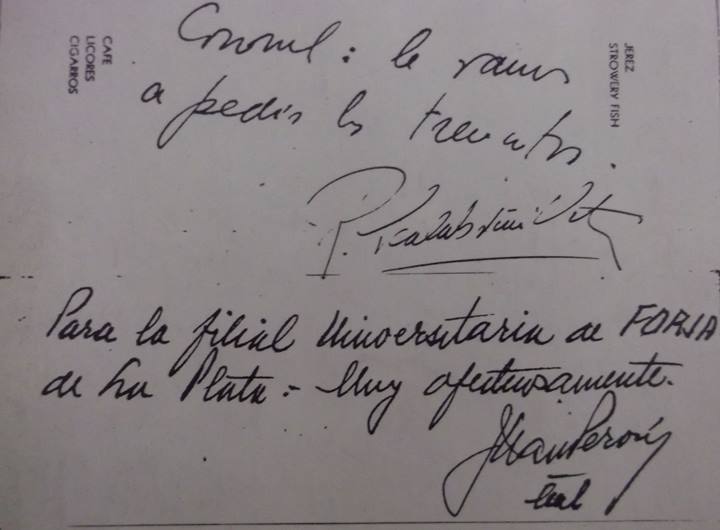 CAFE
LICORES
CIGARROS
JEREZ
STROWERY FISH
Coronel: le vamos
a pedir los trencitos.
R. Scalabrini Ortiz
Para la filial Universitaria de FORJA
de La Plata.- Muy afectuosamente.
Juan Perón